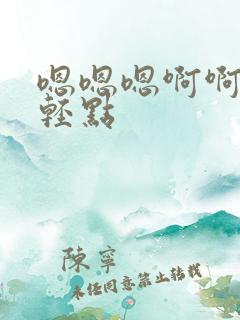 嗯嗯嗯啊啊
輕點
陳寧
未经同意禁止转载